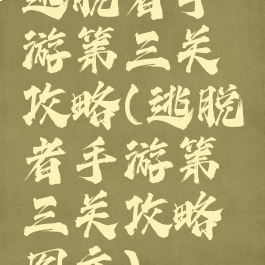 逃脱者手
游第三关
攻略(逃脱
者手游第
三关攻略
图文)